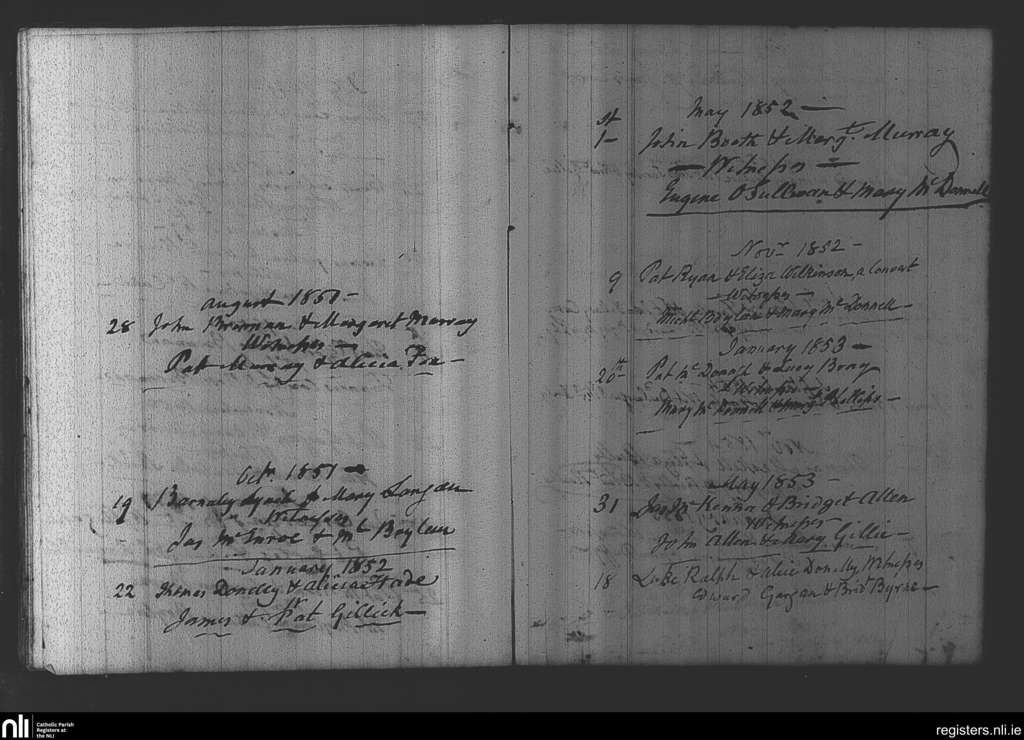 august 1851 –
28 John Brennan & Margaret Murray
Witnesses –
Pat Murray & alicia Fox –
Octr. 1851 –
19 Barnaby Lynch & Mary Langan
Witnesses
Jas Mc Enroe & Ml Boylan
January 1852
22 Thomas Donelly & alicia Wade
James & Pat Gillick –
May 1852 –
st
1 – John Booth & Margt. Murray
– Witnesses –
Eugene O'Sullivan & Mary Mc Donnell
Novr 1852 –
9 Pat Ryan & Eliza Wilkinson, a Convert
– Witnesses –
Michl Boylan & Mary Mc Donnell –
January 1853 –
20th Pat Mc & Lucy
& Witnesses –
Mary Mc Donnell & Phillips –
May 1853 –
31 Jas Mc Kenna & Bridget Allen
Witnesses
John Allen & Mary Gillic –
18 Luke Ralph & Alice Donelly, Witnesses
Edward Gargan & Brid Byrne –
nli
Catholic Parish
Registers at
the NLI
registers.nli.ie